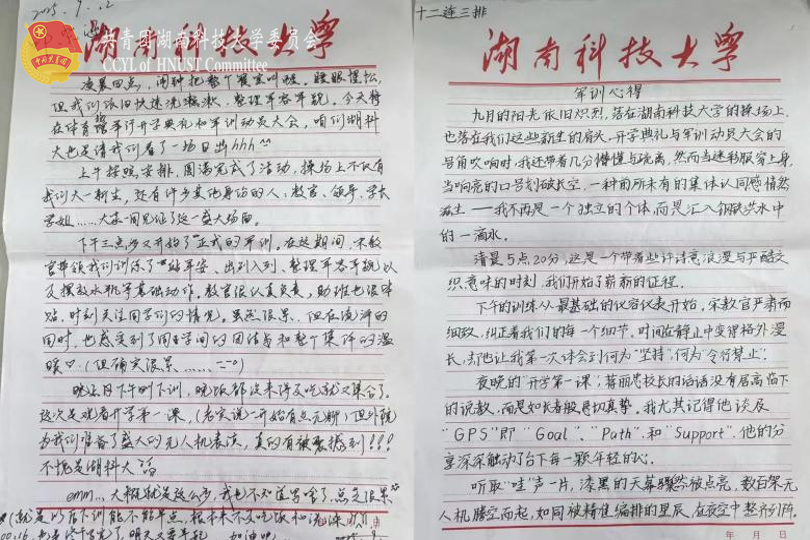 2025.9.12
湖南科技大学
共青团湖南科技大学委员会
CCYL of HNUST Committee
凌晨四点,闹钟把整个寝室叫醒。睡眼惺忪,
但我们依旧快速洗漱,整理军容军貌。今天将
在体育馆举行开学典礼和军训动员大会,咱们湖科
大也是请我们看了一场日出hhh^^
上午按照安排,圆满完成了活动,操场上不仅有
我们大一新生,还有许多其他身份的人:教官、领导、学长
学姐……大家一同见证了这一盛大场面。
下午三点多又开始了正式的军训。在这期间,宋教
官带领我们训练了站军姿、出列入列、整理军容军貌以
及摆放水瓶等基础动作。教官很认真负责,助班也很
时刻关注同学们的情况。虽然很累,但在流汗的
同时,也感受到了同学间的团结与和整个集体的温
暖♡.(但确实很累……
晚上
这次是观看开学第一课,(老实说一开始有点无聊)但外
为我们准备了盛大的无人机表演,真的有被震撼到!!!
不愧是湖科大
emm…大概就是这么多,我也不知道写啥了,总之很累
十二连三排
湖南科技大学
军训心得
九月的阳光依旧炽烈,落在湖南科技大学的操场上,
也落在我们这些新生的肩头。开学典礼与军训动员大会的
号角吹响时,我还带着几分懵懂与疏离,然而当迷彩服穿上身,
当响亮的口号划破长空,一种前所未有的集体认同感悄然
滋生——我不再是一个独立的个体,而是汇入钢铁洪水中
的一滴水。
清晨5点20分,这是一个带着些许诗意浪漫与严酷交
织意味的时刻,我们开始了崭新的征程。
下午的训练从最基础的仪容仪表开始,宋教官严肃而
细致,纠正着我们的每一个细节。时间在静止中变得格外漫
长,却也让我第一次体会到何为“坚持”,何为“令行禁止”.
夜晚的“开学第一课”;蒋丽忠校长的话语没有居高临下
的说教,而是如长者般恳切真挚。我尤其记得他谈及
“GPS”即“Goal”、“Path”,和“Support”.他的分
享深深触动了台下每一颗年轻的心.
听取“哇”声一片,漆黑的天幕骤然被点亮,数百架无
人机腾空而起,如同被精准编排的星辰,在夜空中整齐列阵,
年 月 日